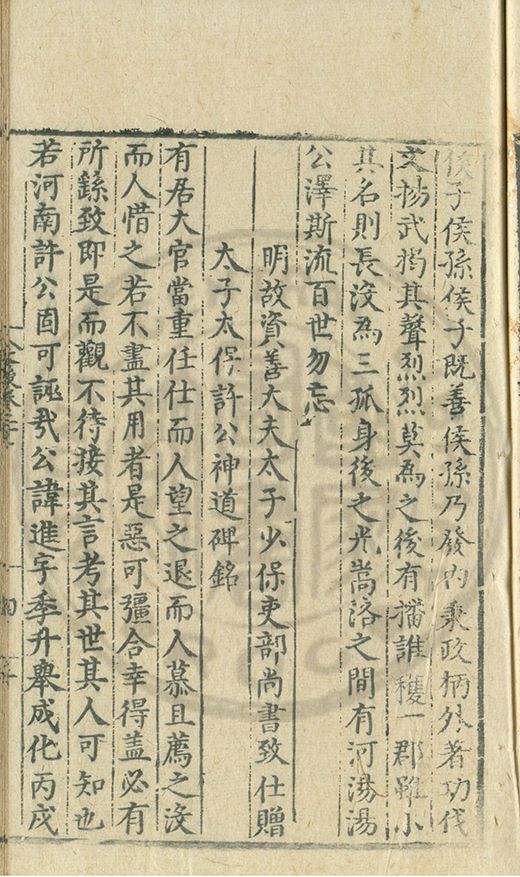 侯子侯孫侯子既善侯孫乃發内秉政柄外著功伐
文揚武獨其聲烈烈莫為之後有播誰穫一郡雖小
其名則長沒為三孤身後之光嵩洛之間有河湯湯
公澤斯流百世勿忘
明故資善大夫太子少保吏部尚書致仕贈
太子太保許公神道碑銘
有居大官當重任仕而人望之退而人慕且薦之沒
而人惜之若不盡其用者是惡可彊合幸得盖必有
所繇致即是而觀不待接其言考其世其人可知也
若河南許公固可誣㢤公諱進字季升舉成化丙戌